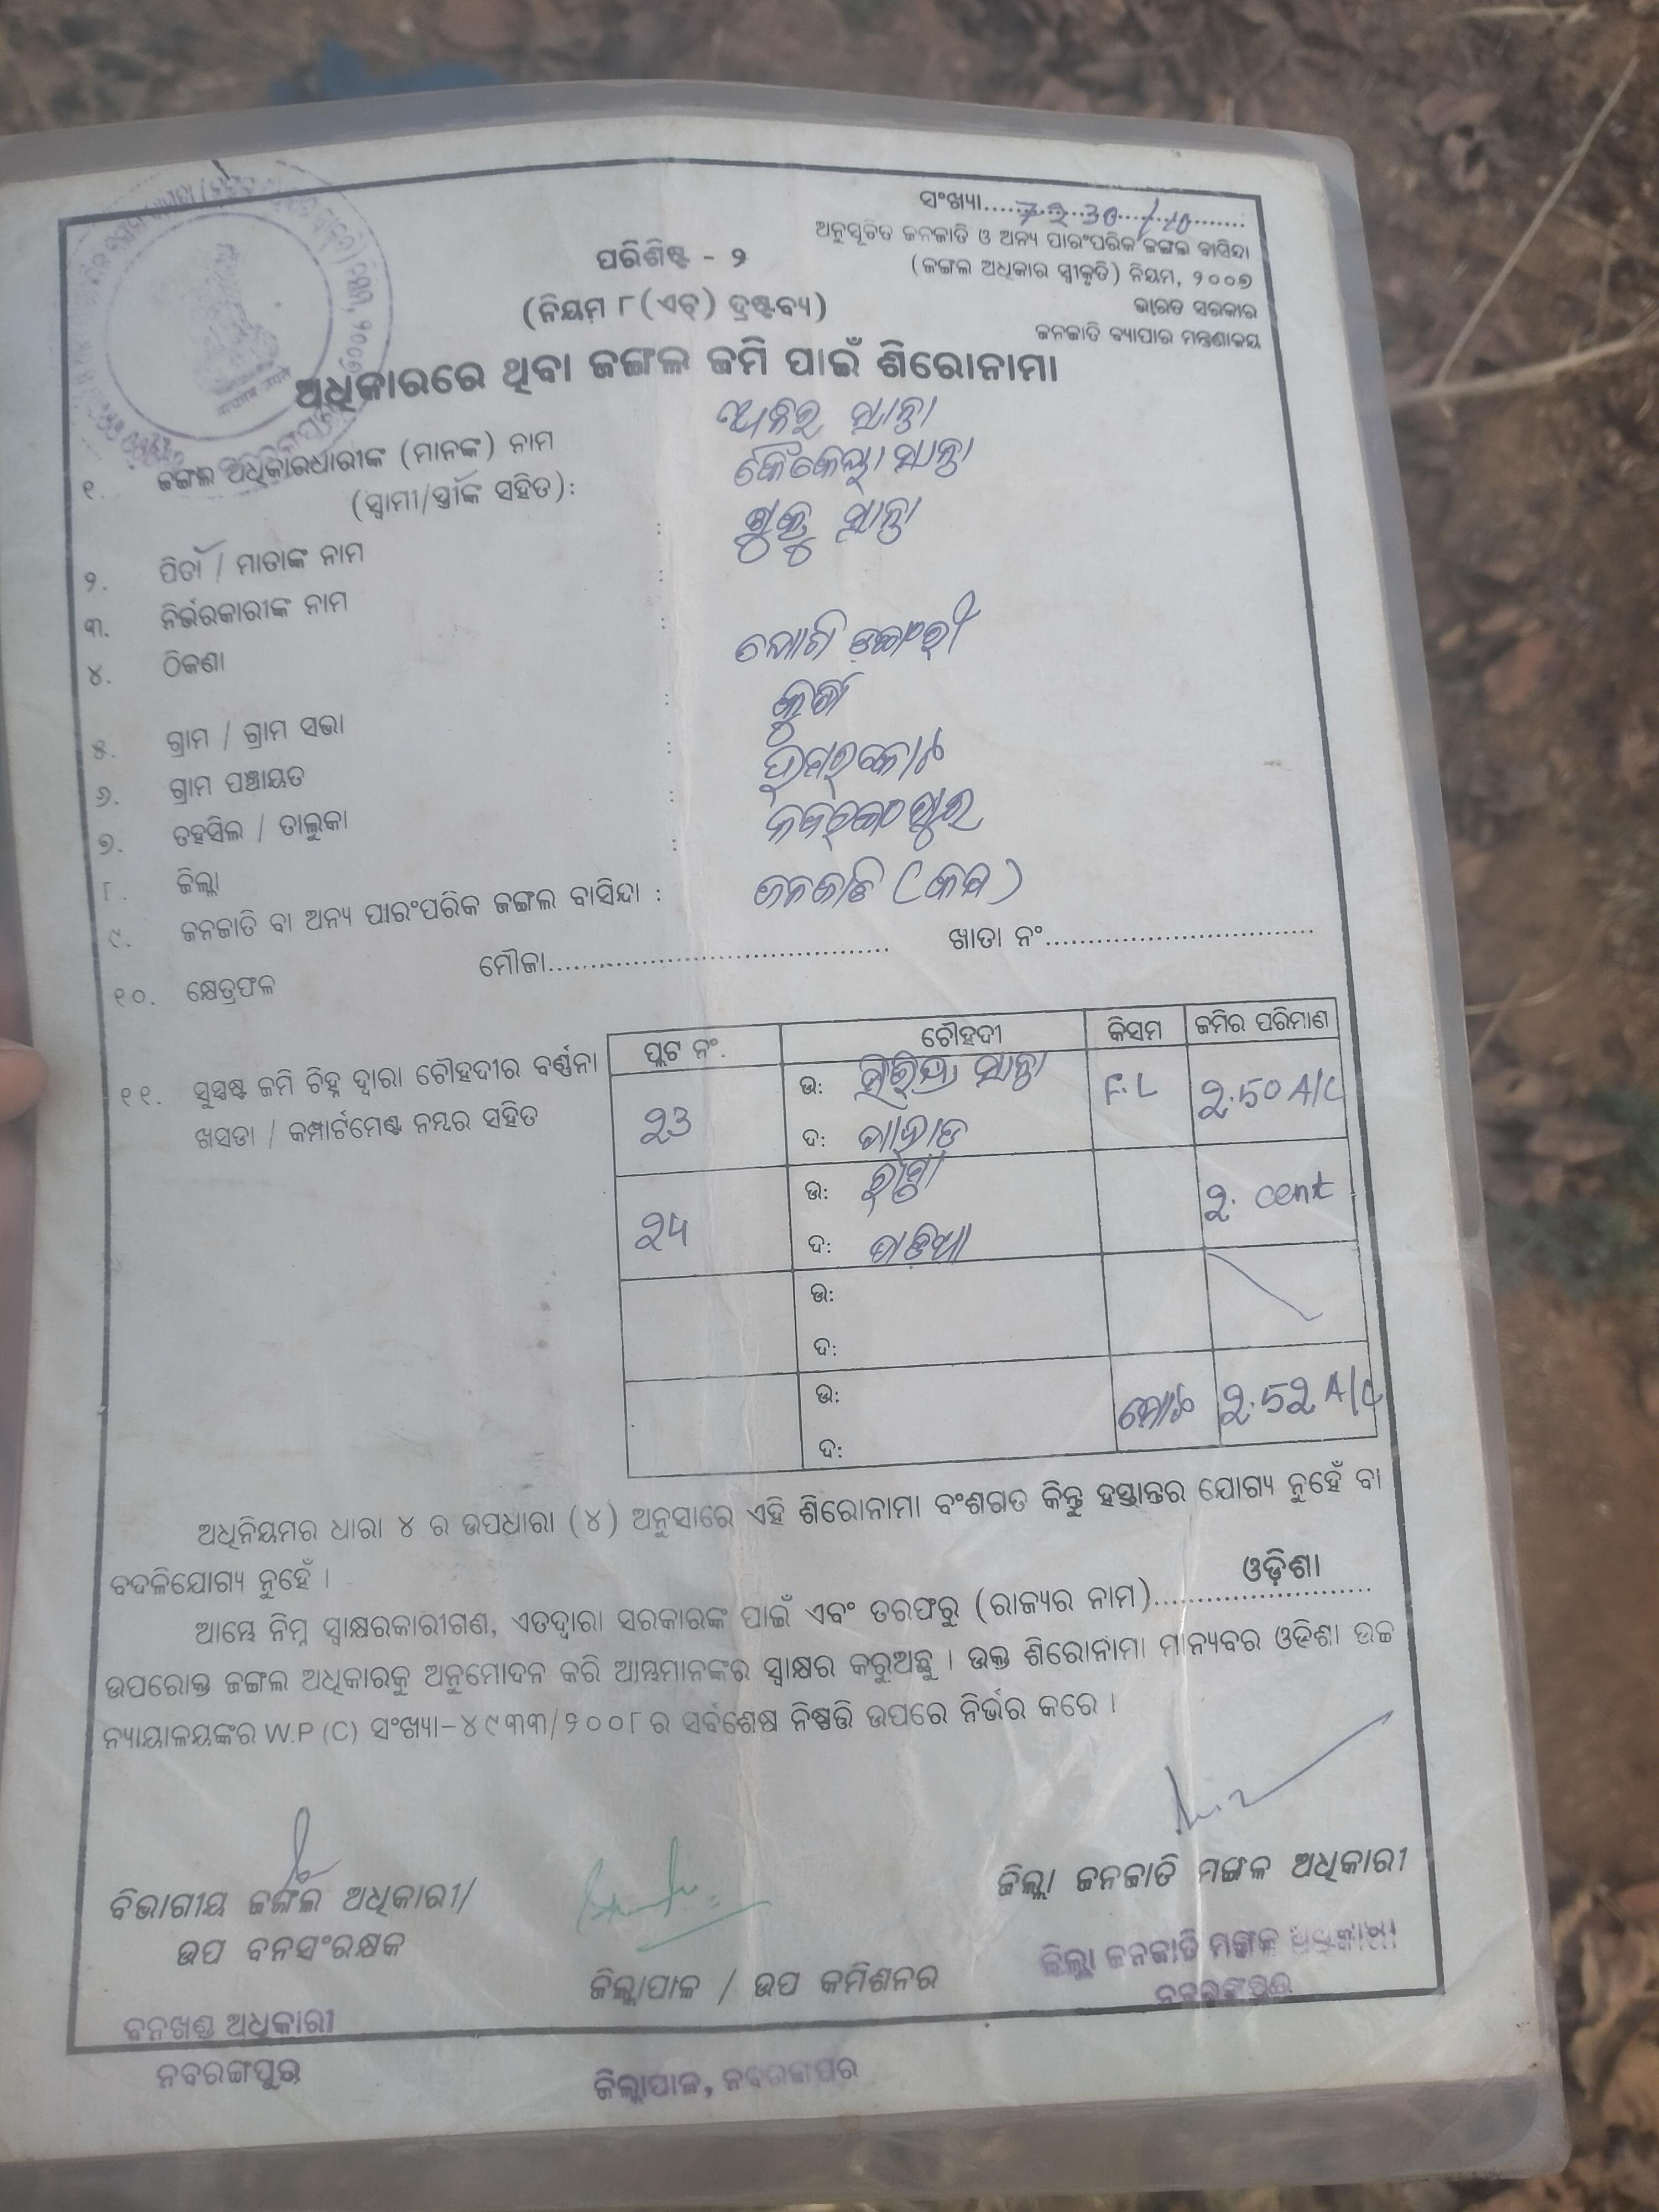 ସଂଖ୍ୟା.......7230/10.......
ଅନୁସୂଚିତ ଜନଜାତି ଓ ଅନ୍ୟ ପାରଂପରିକ ଜଙ୍ଗଲ ବାସିନ୍ଦା
(ଜଙ୍ଗଲ ଅଧିକାର ସ୍ୱୀକୃତି) ନିୟମ, ୨୦୦୭
ଭାରତ ସରକାର
ଜନଜାତି ବ୍ୟାପାର ମନ୍ତ୍ରଣାଳୟ
ପରିଶିଷ୍ଟ - ୨
(ନିୟମ ୮ (ଏଚ୍) ଦ୍ରଷ୍ଟବ୍ୟ)
ଅଧିକାରରେ ଥିବା ଜଙ୍ଗଲ ଜମି ପାଇଁ ଶିରୋନାମା
୧. ଜଙ୍ଗଲ ଅଧିକାରଧାରୀଙ୍କ (ମାନଙ୍କ) ନାମ ସାନ୍ତା
(ସ୍ୱାମୀ/ସ୍ତ୍ରୀଙ୍କ ସହିତ): ସାନ୍ତା
୨. ପିତା / ମାତାଙ୍କ ନାମ : ସାନ୍ତା
୩. ନିର୍ଭରକାରୀଙ୍କ ନାମ :
୪. ଠିକଣା :
୫. ଗ୍ରାମ / ଗ୍ରାମ ସଭା :
୬. ଗ୍ରାମ ପଞ୍ଚାୟତ :
୭. ତହସିଲ / ତାଲୁକା :
୮. ଜିଲ୍ଲା : ନବରଙ୍ଗପୁର
୯. ଜନଜାତି ବା ଅନ୍ୟ ପାରଂପରିକ ଜଙ୍ଗଲ ବାସିନ୍ଦା : ଜନଜାତି
୧୦. କ୍ଷେତ୍ରଫଳ ମୌଜା........................ ଖାତା ନଂ........................
୧୧. ସୁସ୍ପଷ୍ଟ ଜମି ଚିହ୍ନ ଦ୍ୱାରା ଚୌହଦୀର ବର୍ଣ୍ଣନା
ଖସଡା / କମ୍ପାର୍ଟମେଣ୍ଟ ନମ୍ବର ସହିତ
ପ୍ଲଟ ନଂ. ଚୌହଦୀ କିସମ ଜମିର ପରିମାଣ
୨୩ ଉ: ସାନ୍ତା F.L ୨.50 A/C
ଦ: ପାହାଡ
୨୪ ଉ: ରାସ୍ତା ୨. cent
ଦ: ପଡିଆ
ଉ:
ଦ:
ଉ: ମୋଟ ୨.5୨ A/C
ଦ:
ଅଧିନିୟମର ଧାରା ୪ ର ଉପଧାରା (୪) ଅନୁସାରେ ଏହି ଶିରୋନାମା ବଂଶଗତ କିନ୍ତୁ ହସ୍ତାନ୍ତର ଯୋଗ୍ୟ ନୁହେଁ ବା
ବଦଳିଯୋଗ୍ୟ ନୁହେଁ ।
ଆମ୍ଭେ ନିମ୍ନ ସ୍ୱାକ୍ଷରକାରୀଗଣ, ଏତଦ୍ୱାରା ସରକାରଙ୍କ ପାଇଁ ଏବଂ ତରଫରୁ (ରାଜ୍ୟର ନାମ)......ଓଡ଼ିଶା......
ଉପରୋକ୍ତ ଜଙ୍ଗଲ ଅଧିକାରକୁ ଅନୁମୋଦନ କରି ଆମ୍ଭମାନଙ୍କର ସ୍ୱାକ୍ଷର କରୁଅଛୁ । ଉକ୍ତ ଶିରୋନାମା ମାନ୍ୟବର ଓଡିଶା ଉଚ୍ଚ
ନ୍ୟାୟାଳୟଙ୍କର W.P (C) ସଂଖ୍ୟା-୪୯୩୩/୨୦୦୮ ର ସର୍ବଶେଷ ନିଷ୍ପତ୍ତି ଉପରେ ନିର୍ଭର କରେ ।
ବିଭାଗୀୟ ଜଙ୍ଗଲ ଅଧିକାରୀ/
ଉପ ବନସଂରକ୍ଷକ
ବନଖଣ୍ଡ ଅଧିକାରୀ
ନବରଙ୍ଗପୁର
ଜିଲ୍ଲାପାଳ / ଉପ କମିଶନର
ଜିଲ୍ଲାପାଳ, ନବରଙ୍ଗପୁର
ଜିଲ୍ଲା ଜନଜାତି ମଙ୍ଗଳ ଅଧିକାରୀ
ଜିଲ୍ଲା ଜନଜାତି ମଙ୍ଗଳ ଅଧିକାରୀ
ନବରଙ୍ଗପୁର